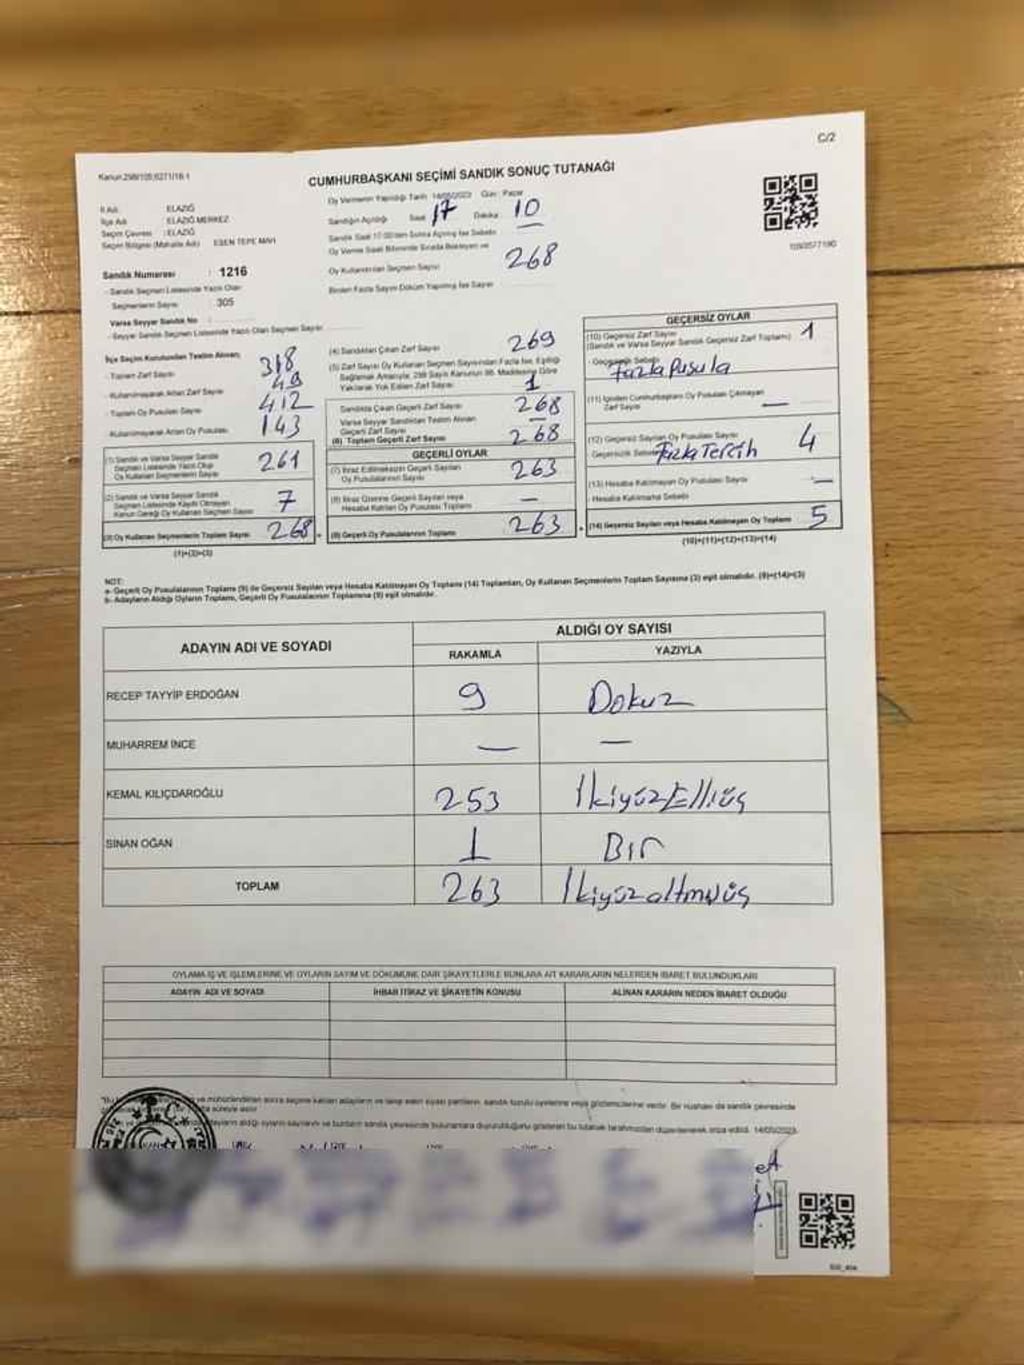 C/2
Kanun:298/105;6271/18-1
CUMHURBAŞKANI SEÇİMİ SANDIK SONUÇ TUTANAĞI
İl Adı : ELAZIĞ
İlçe Adı : ELAZIĞ MERKEZ
Seçim Çevresi : ELAZIĞ
Seçim Bölgesi (Mahalle Adı) ESEN TEPE MAH.
Sandık Numarası : 1216
- Sandık Seçmen Listesinde Yazılı Olan
Seçmenlerin Sayısı : 305
Varsa Seyyar Sandık No :
- Seyyar Sandık Seçmen Listesinde Yazılı Olan Seçmen Sayısı
Oy Vermenin Yapıldığı Tarih 14/05/2023 Gün: Pazar
Sandığın Açıldığı Saat 17 Dakika 10
Sandık Saat 17.00'den Sonra Açılmış İse Sebebi —
Oy Verme Saati Bitiminde Sırada Bekleyen ve
Oy Kullandırılan Seçmen Sayısı 268
Birden Fazla Sayım Döküm Yapılmış İse Sayısı
İlçe Seçim Kurulundan Teslim Alınan;
- Toplam Zarf Sayısı 318
- Kullanılmayarak Artan Zarf Sayısı 49
- Toplam Oy Pusulası Sayısı 412
- Kullanılmayarak Artan Oy Pusulası 143
(1) Sandık ve Varsa Seyyar Sandık
Seçmen Listesinde Yazılı Olup
Oy Kullanan Seçmenlerin Sayısı 261
(2) Sandık ve Varsa Seyyar Sandık
Seçmen Listesinde Kaydı Olmayan
Kanun Gereği Oy Kullanan Seçmen Sayısı 7
(3) Oy Kullanan Seçmenlerin Toplam Sayısı 268
(1)+(2)=(3)
(4) Sandıktan Çıkan Zarf Sayısı 269
(5) Zarf Sayısı Oy Kullanan Seçmen Sayısından Fazla İse, Eşitliği
Sağlamak Amacıyla, 298 Sayılı Kanunun 98. Maddesine Göre
Yakılarak Yok Edilen Zarf Sayısı 1
Sandıkta Çıkan Geçerli Zarf Sayısı 268
Varsa Seyyar Sandıktan Teslim Alınan
Geçerli Zarf Sayısı —
(6) Toplam Geçerli Zarf Sayısı 268
GEÇERLİ OYLAR
(7) İtiraz Edilmeksizin Geçerli Sayılan
Oy Pusulalarının Sayısı 263
(8) İtiraz Üzerine Geçerli Sayılan veya
Hesaba Katılan Oy Pusulası Toplamı —
(9) Geçerli Oy Pusulalarının Toplamı 263
GEÇERSİZ OYLAR
(10) Geçersiz Zarf Sayısı 1
(Sandık ve Varsa Seyyar Sandık Geçersiz Zarf Toplamı)
- Geçersizlik Sebebi Fazla Pusula
(11) İçinden Cumhurbaşkanı Oy Pusulası Çıkmayan
Zarf Sayısı —
(12) Geçersiz Sayılan Oy Pusulası Sayısı 4
- Geçersizlik Sebebi Fazla Tercih
(13) Hesaba Katılmayan Oy Pusulası Sayısı —
- Hesaba Katılmama Sebebi
(14) Geçersiz Sayılan veya Hesaba Katılmayan Oy Toplamı 5
(10)+(11)+(12)+(13)=(14)
NOT:
a- Geçerli Oy Pusulalarının Toplamı (9) ile Geçersiz Sayılan veya Hesaba Katılmayan Oy Toplamı (14) Toplamları, Oy Kullanan Seçmenlerin Toplam Sayısına (3) eşit olmalıdır. (9)+(14)=(3)
b- Adayların Aldığı Oyların Toplamı, Geçerli Oy Pusulalarının Toplamına (9) eşit olmalıdır.
ADAYIN ADI VE SOYADI
ALDIĞI OY SAYISI
RAKAMLA YAZIYLA
RECEP TAYYİP ERDOĞAN 9 Dokuz
MUHARREM İNCE — —
KEMAL KILIÇDAROĞLU 253 İkiyüzElliüç
SİNAN OĞAN 1 Bir
TOPLAM 263 İkiyüzaltmışüç
OYLAMA İŞ VE İŞLEMLERİNE VE OYLARIN SAYIM VE DÖKÜMÜNE DAİR ŞİKAYETLERLE BUNLARA AİT KARARLARIN NELERDEN İBARET BULUNDUKLARI
ADAYIN ADI VE SOYADI İHBAR İTİRAZ VE ŞİKAYETİN KONUSU ALINAN KARARIN NEDEN İBARET OLDUĞU
ve mühürlendikten sonra seçime katılan adayların ve talep eden siyasi partilerin, sandık kurulu üyelerine veya gözlemcilerine verilir. Bir nüshası da sandık çevresinde
süreyle asılır
adayların aldığı oyların sayısını ve bunların sandık çevresinde bulunanlara duyurulduğunu gösteren bu tutanak tarafımızdan düzenlenerek imza edildi. 14/05/2023